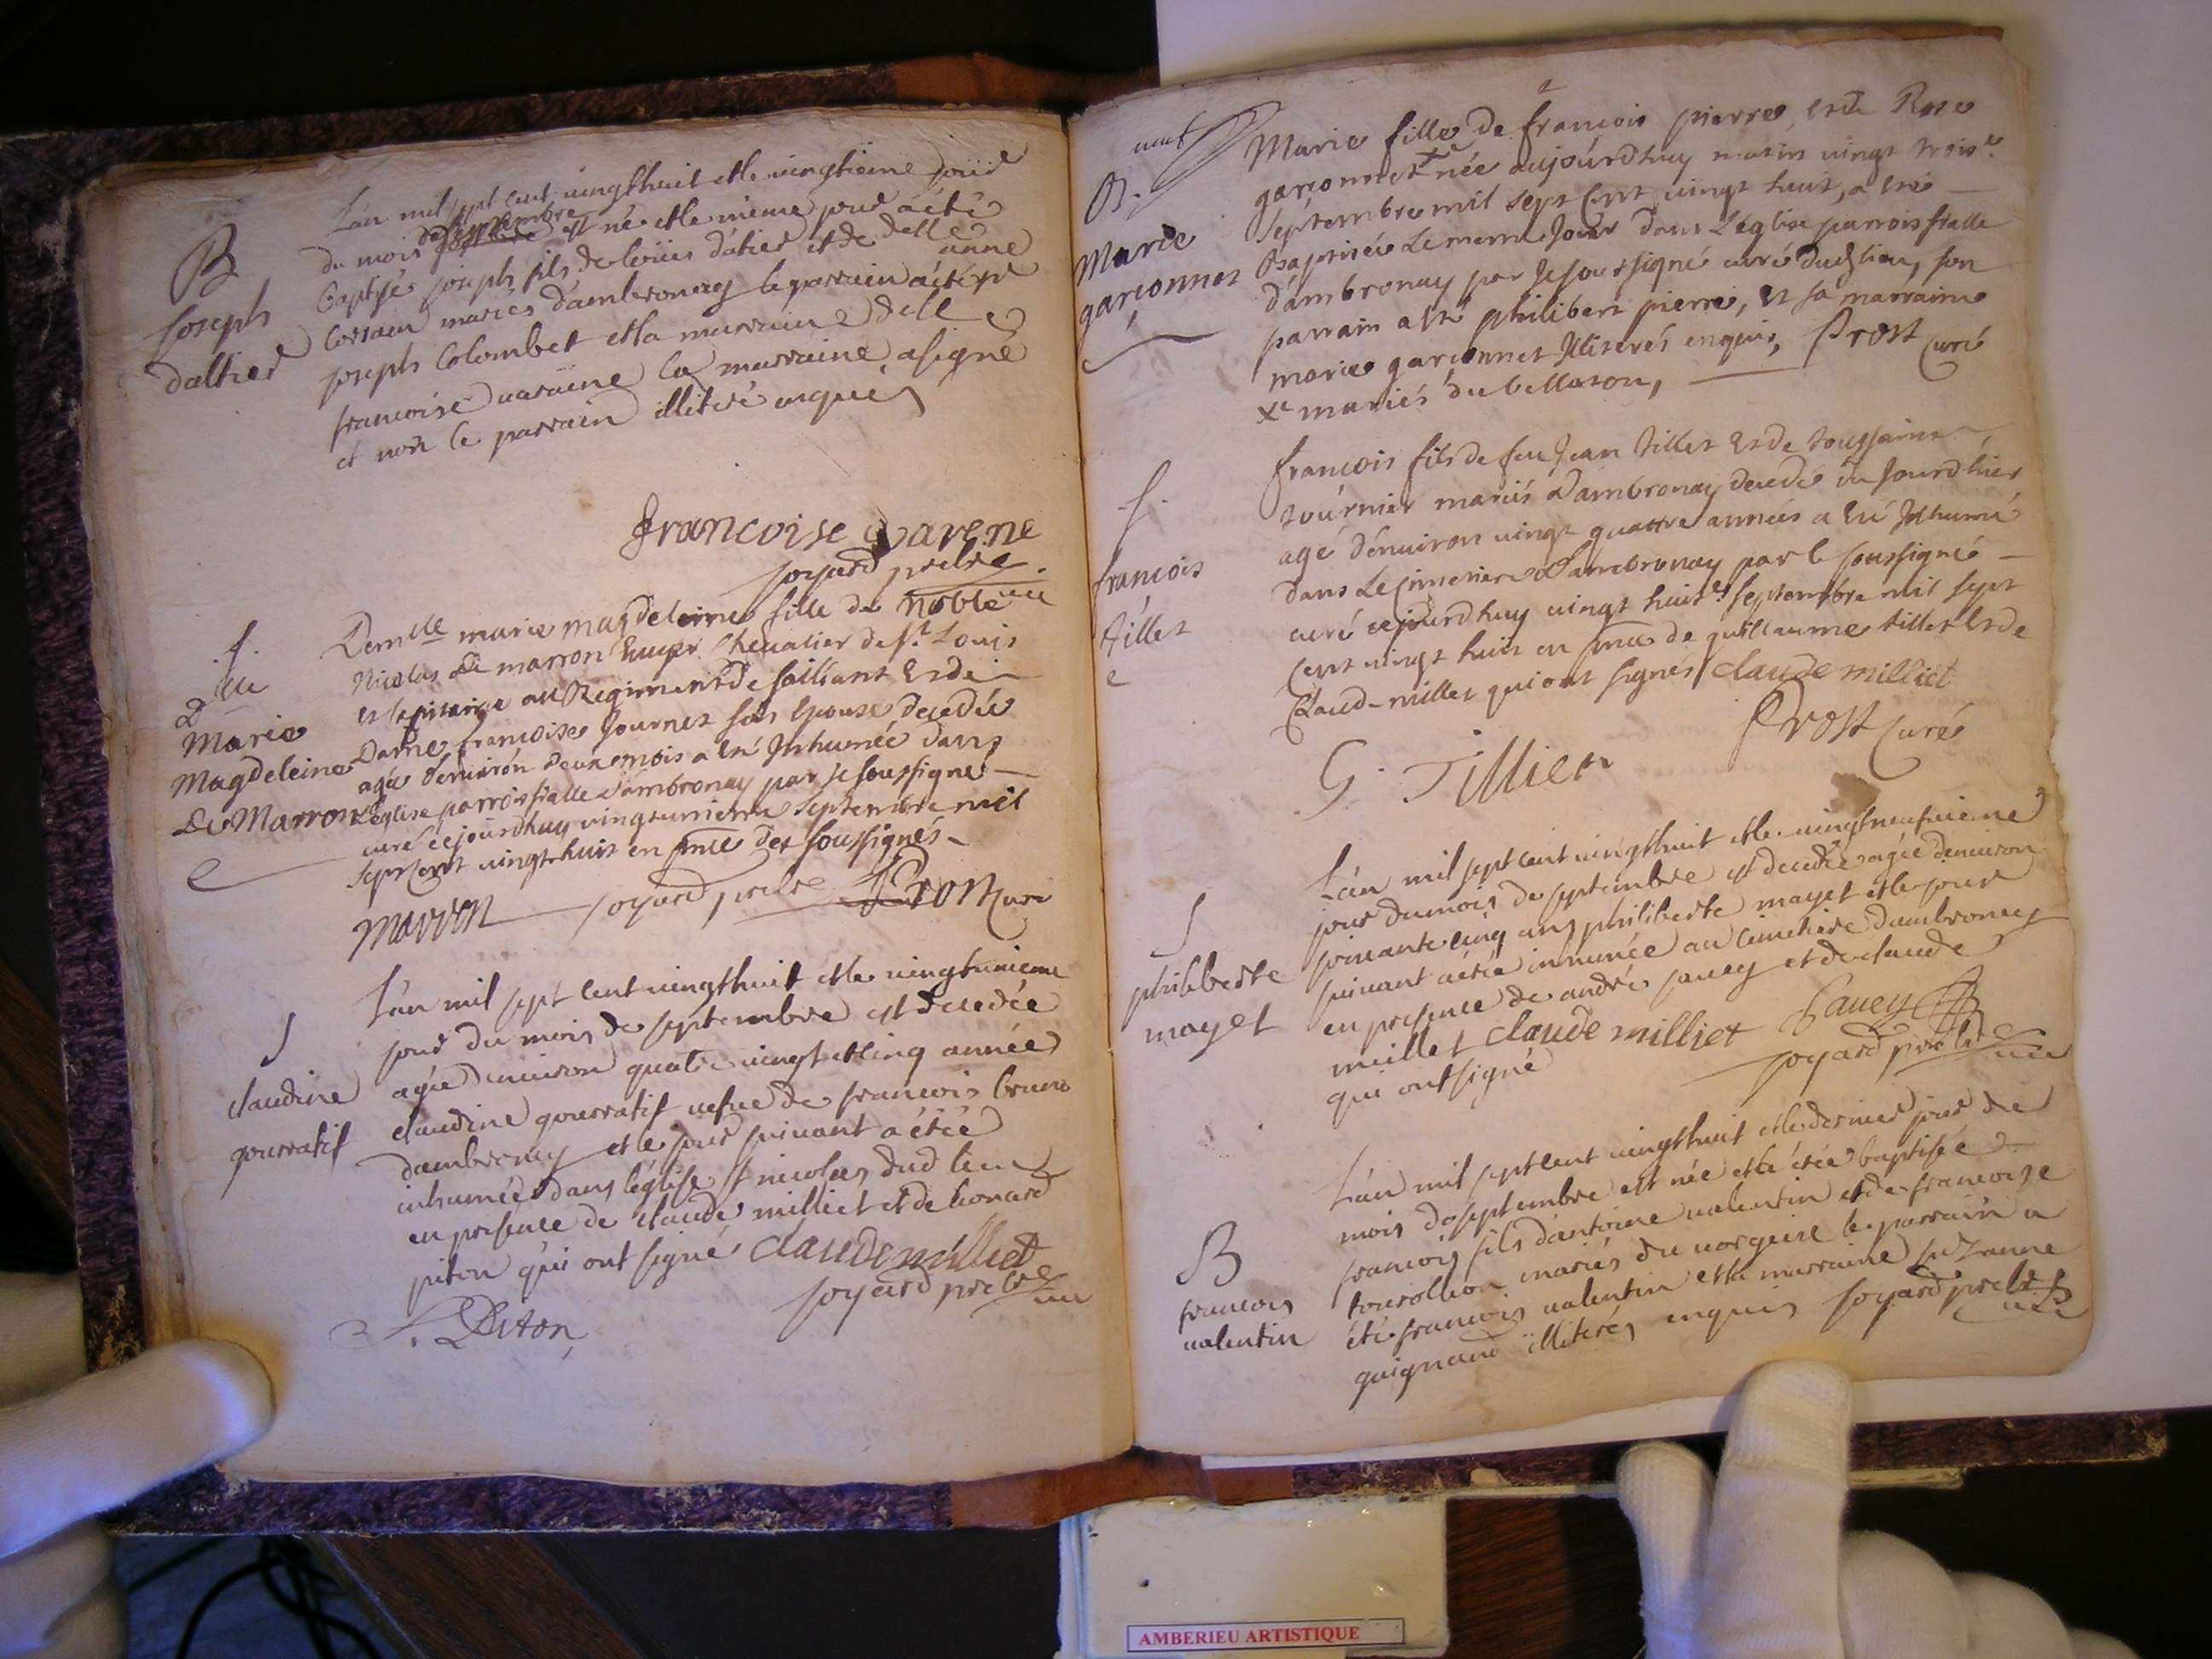 B
Joseph
dallier
L'an mil sept cent vingthuit et le vingtieme jour
du mois de septembre est né et le meme jour a été
baptisé joseph fils de loüis datier et de delle anne
mariés d'ambronay le parrain a été
joseph Colombet et la marraine delle
francoise varaine la marraine a signé
et non le parrain illiteré enquis
francoise varene
joyard prebtre
f.
Dlle
Marie
Magdeleine
De Marron
Demlle marie magdeleine fille de noble
Nicolas De marron Chevalier de St Louis
et Capitaine au Regiment de et de
Dame francoise Journet son Epouse decedée
agée d'environ deux mois a eté Inhumée dans
L'eglise parroissialle d'ambronay par je soussigné
curé cejourdhuy vingtunieme septembre mil
sept cent vingt-huit en pnce des soussignés
marron joyard prebtre Prost curé
S
claudine
gourratif
L'an mil sept cent vingthuit et le vingtunieme
jour du mois de septembre est decedée
agée denviron quatre vingt et cinq année
claudine gourratif vefve de francois brun
dambronay et le jour suivant a étée
inhumée dans léglise st nicolas dud lieu
en presence de claude milliet et de leonard
piton qui ont signé claude milliet
joyard prebtre
L. Piton
B.
Marie
garconnet
Marie fille de francois pierre, et de Rose
garconnet née aujourdhuy matin vingt troise
septembre mil sept cent vingt huit, a eté
Baptisée Le meme Jour dans L'eglise parroissialle
d'ambronay par Je soussigné curé dudt lieu, son
parrain a eté philibert pierre, et sa marraine
marie garconnet Illiterés enquis, Prost curé
xe mariés du bellaton,
f.
francois
tillet
francois fils de feu Jean tillet et de toussaine
tournier mariés d'ambronay decedé du Jourdhier
agé d'environ vingt quattre années a eté Inhumé
dans Le cimetiere d'ambronay par le soussigné
curé cejourdhuy vingt huite septembre mil sept
cent vingt huit en pnce de guillaume tillet et de
Claud-millet qui ont signés claude milliet
G. Tillier Prost curé
S
philiberte
mayet
L'an mil sept cent vingthuit et le vingtneufvieme
jour du mois de septembre est decedée agée denviron
soixante cinq ans philiberte mayet et le jour
suivant a étée inhumée au cimetiere dambronay
en presence de andré savey et de claude
millet claude milliet Savey
qui ont signé joyard prebtre
B
francois
valentin
L'an mil sept cent vingthuit et le dernier jour du
mois de septembre est née et a étée baptisée
francois fils d'antoine valentin et de francoise
tourollion mariés du vorgeire le parrain a
été francois valentin et la marraine suzanne
guignard illiterés enquis joyard prebtre
AMBERIEU ARTISTIQUE